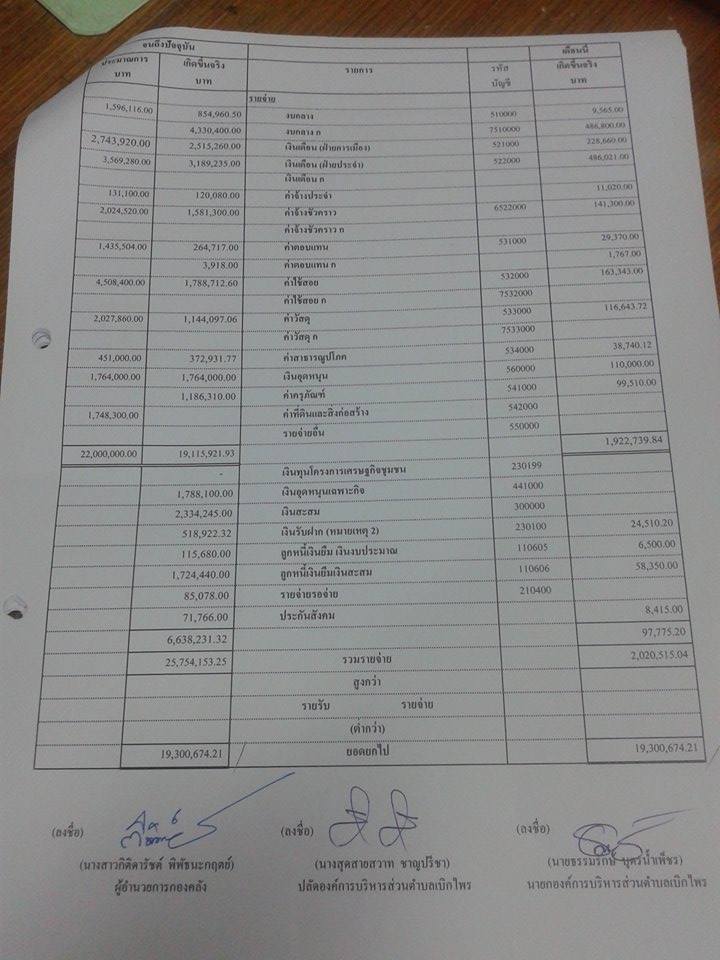 จนถึงปัจจุบัน เดือนนี้
ประมาณการ เกิดขึ้นจริง รายการ รหัส เกิดขึ้นจริง
บาท บาท บัญชี บาท
รายจ่าย
1,596,116.00 854,960.50 งบกลาง 510000 9,565.00
4,330,400.00 งบกลาง ก 7510000 486,800.00
2,743,920.00 2,515,260.00 เงินเดือน (ฝ่ายการเมือง) 521000 228,660.00
3,569,280.00 3,189,235.00 เงินเดือน (ฝ่ายประจำ) 522000 486,021.00
เงินเดือน ก
131,100.00 120,080.00 ค่าจ้างประจำ 11,020.00
2,024,520.00 1,581,300.00 ค่าจ้างชั่วคราว 6522000 141,300.00
ค่าจ้างชั่วคราว ก
1,435,504.00 264,717.00 ค่าตอบแทน 531000 29,370.00
3,918.00 ค่าตอบแทน ก 1,767.00
4,508,400.00 1,788,712.60 ค่าใช้สอย 532000 163,343.00
ค่าใช้สอย ก 7532000
2,027,860.00 1,144,097.06 ค่าวัสดุ 533000 116,643.72
ค่าวัสดุ ก 7533000
451,000.00 372,931.77 ค่าสาธารณูปโภค 534000 38,740.12
1,764,000.00 1,764,000.00 เงินอุดหนุน 560000 110,000.00
1,186,310.00 ค่าครุภัณฑ์ 541000 99,510.00
1,748,300.00 ค่าที่ดินและสิ่งก่อสร้าง 542000
รายจ่ายอื่น 550000
22,000,000.00 19,115,921.93 1,922,739.84
- เงินทุนโครงการเศรษฐกิจชุมชน 230199
1,788,100.00 เงินอุดหนุนเฉพาะกิจ 441000
2,334,245.00 เงินสะสม 300000
518,922.32 เงินรับฝาก (หมายเหตุ 2) 230100 24,510.20
115,680.00 ลูกหนี้เงินยืม เงินงบประมาณ 110605 6,500.00
1,724,440.00 ลูกหนี้เงินยืมเงินสะสม 110606 58,350.00
85,078.00 รายจ่ายรอจ่าย 210400
71,766.00 ประกันสังคม 8,415.00
6,638,231.32 97,775.20
25,754,153.25 รวมรายจ่าย 2,020,515.04
สูงกว่า
รายรับ รายจ่าย
(ต่ำกว่า)
19,300,674.21 ยอดยกไป 19,300,674.21
(ลงชื่อ) (ลงชื่อ) (ลงชื่อ)
(นางสาวกิติดารัชต์ พิพัธนะกฤตย์) (นางสุดสายสวาท ชาญปรีชา) (นายธรรมรักษ์ บุตรน้ำเพ็ชร)
ผู้อำนวยการกองคลัง ปลัดองค์การบริหารส่วนตำบลเบิกไพร นายกองค์การบริหารส่วนตำบลเบิกไพร